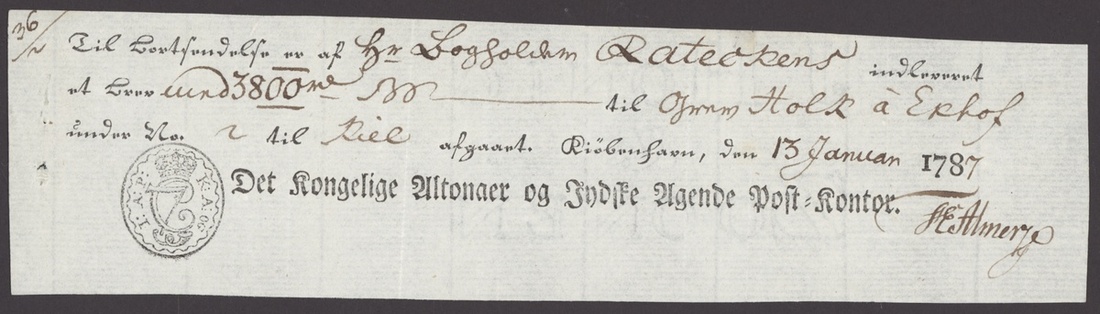 36
Til Bortsendelse er af Hr Bogholdern Rateckens indleveret
et Brev med 3800 til Grev Holk à Ekhof
under No. 2 til Kiel afgaaet. Kiöbenhavn, den 13 Januarii 1787
Det Kongelige Altonaer og Jydske Agende Post-Kontor.